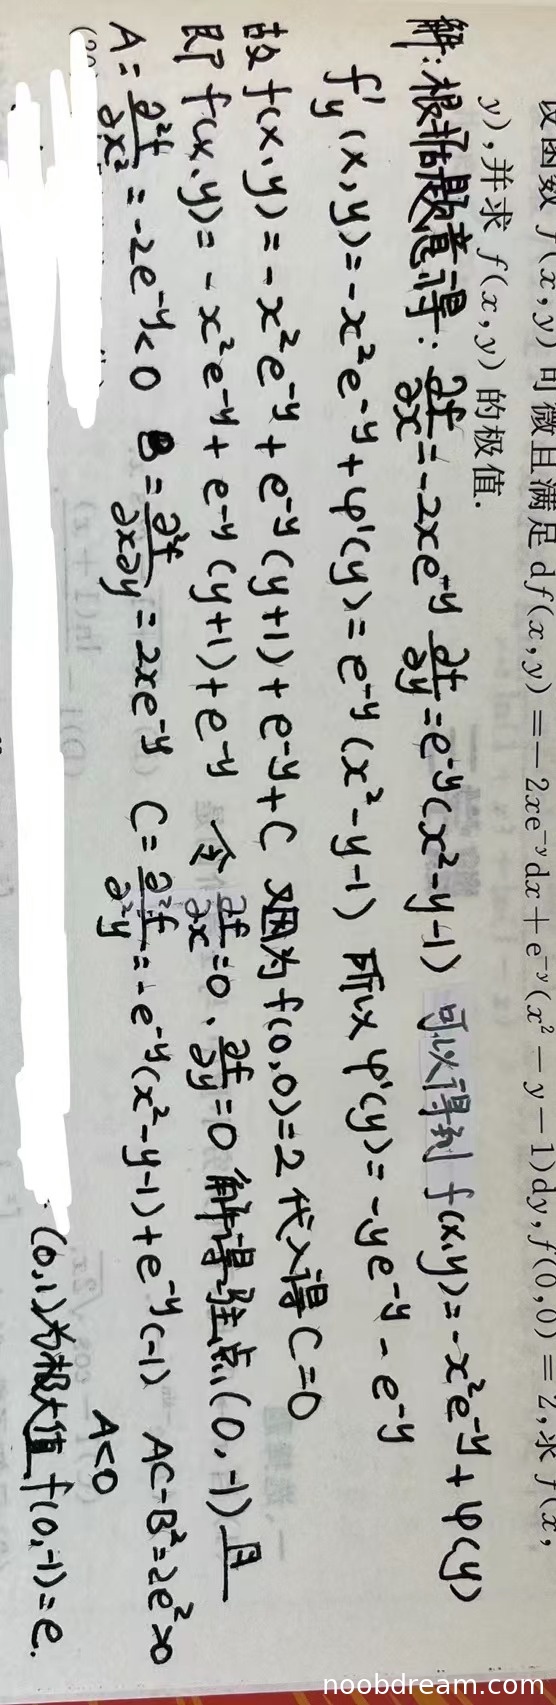 设函数 f(x,y) 可微且满足 df(x,y)=-2xe^{-y}dx+e^{-y}(x²-y-1)dy,f(0,0)=2,求 f(x,
y),并求 f(x,y) 的极值.
解:根据题意得: ∂f/∂x=-2xe^{-y} ∂f/∂y=e^{-y}(x²-y-1) 可以得到 f(x,y)=-x²e^{-y}+φ(y)
f'y(x,y)=-x²e^{-y}+φ'(y)=e^{-y}(x²-y-1) 所以 φ'(y)=-ye^{-y}-e^{-y}
故 f(x,y)=-x²e^{-y}+e^{-y}(y+1)+e^{-y}+C 又因为 f(0,0)=2 代入得 C=0
即 f(x,y)=-x²e^{-y}+e^{-y}(y+1)+e^{-y} 令 ∂f/∂x=0、∂f/∂y=0 解得驻点(0,-1) 且
A=∂²f/∂x²=-2e^{-y}<0 B=∂²f/∂x∂y=2xe^{-y} C=∂²f/∂²y=-e^{-y}(x²-y-1)+e^{-y}(-1) AC-B²=2e²>0
A<0
(0,1)为极大值 f(0,-1)=e.
noobdream.com